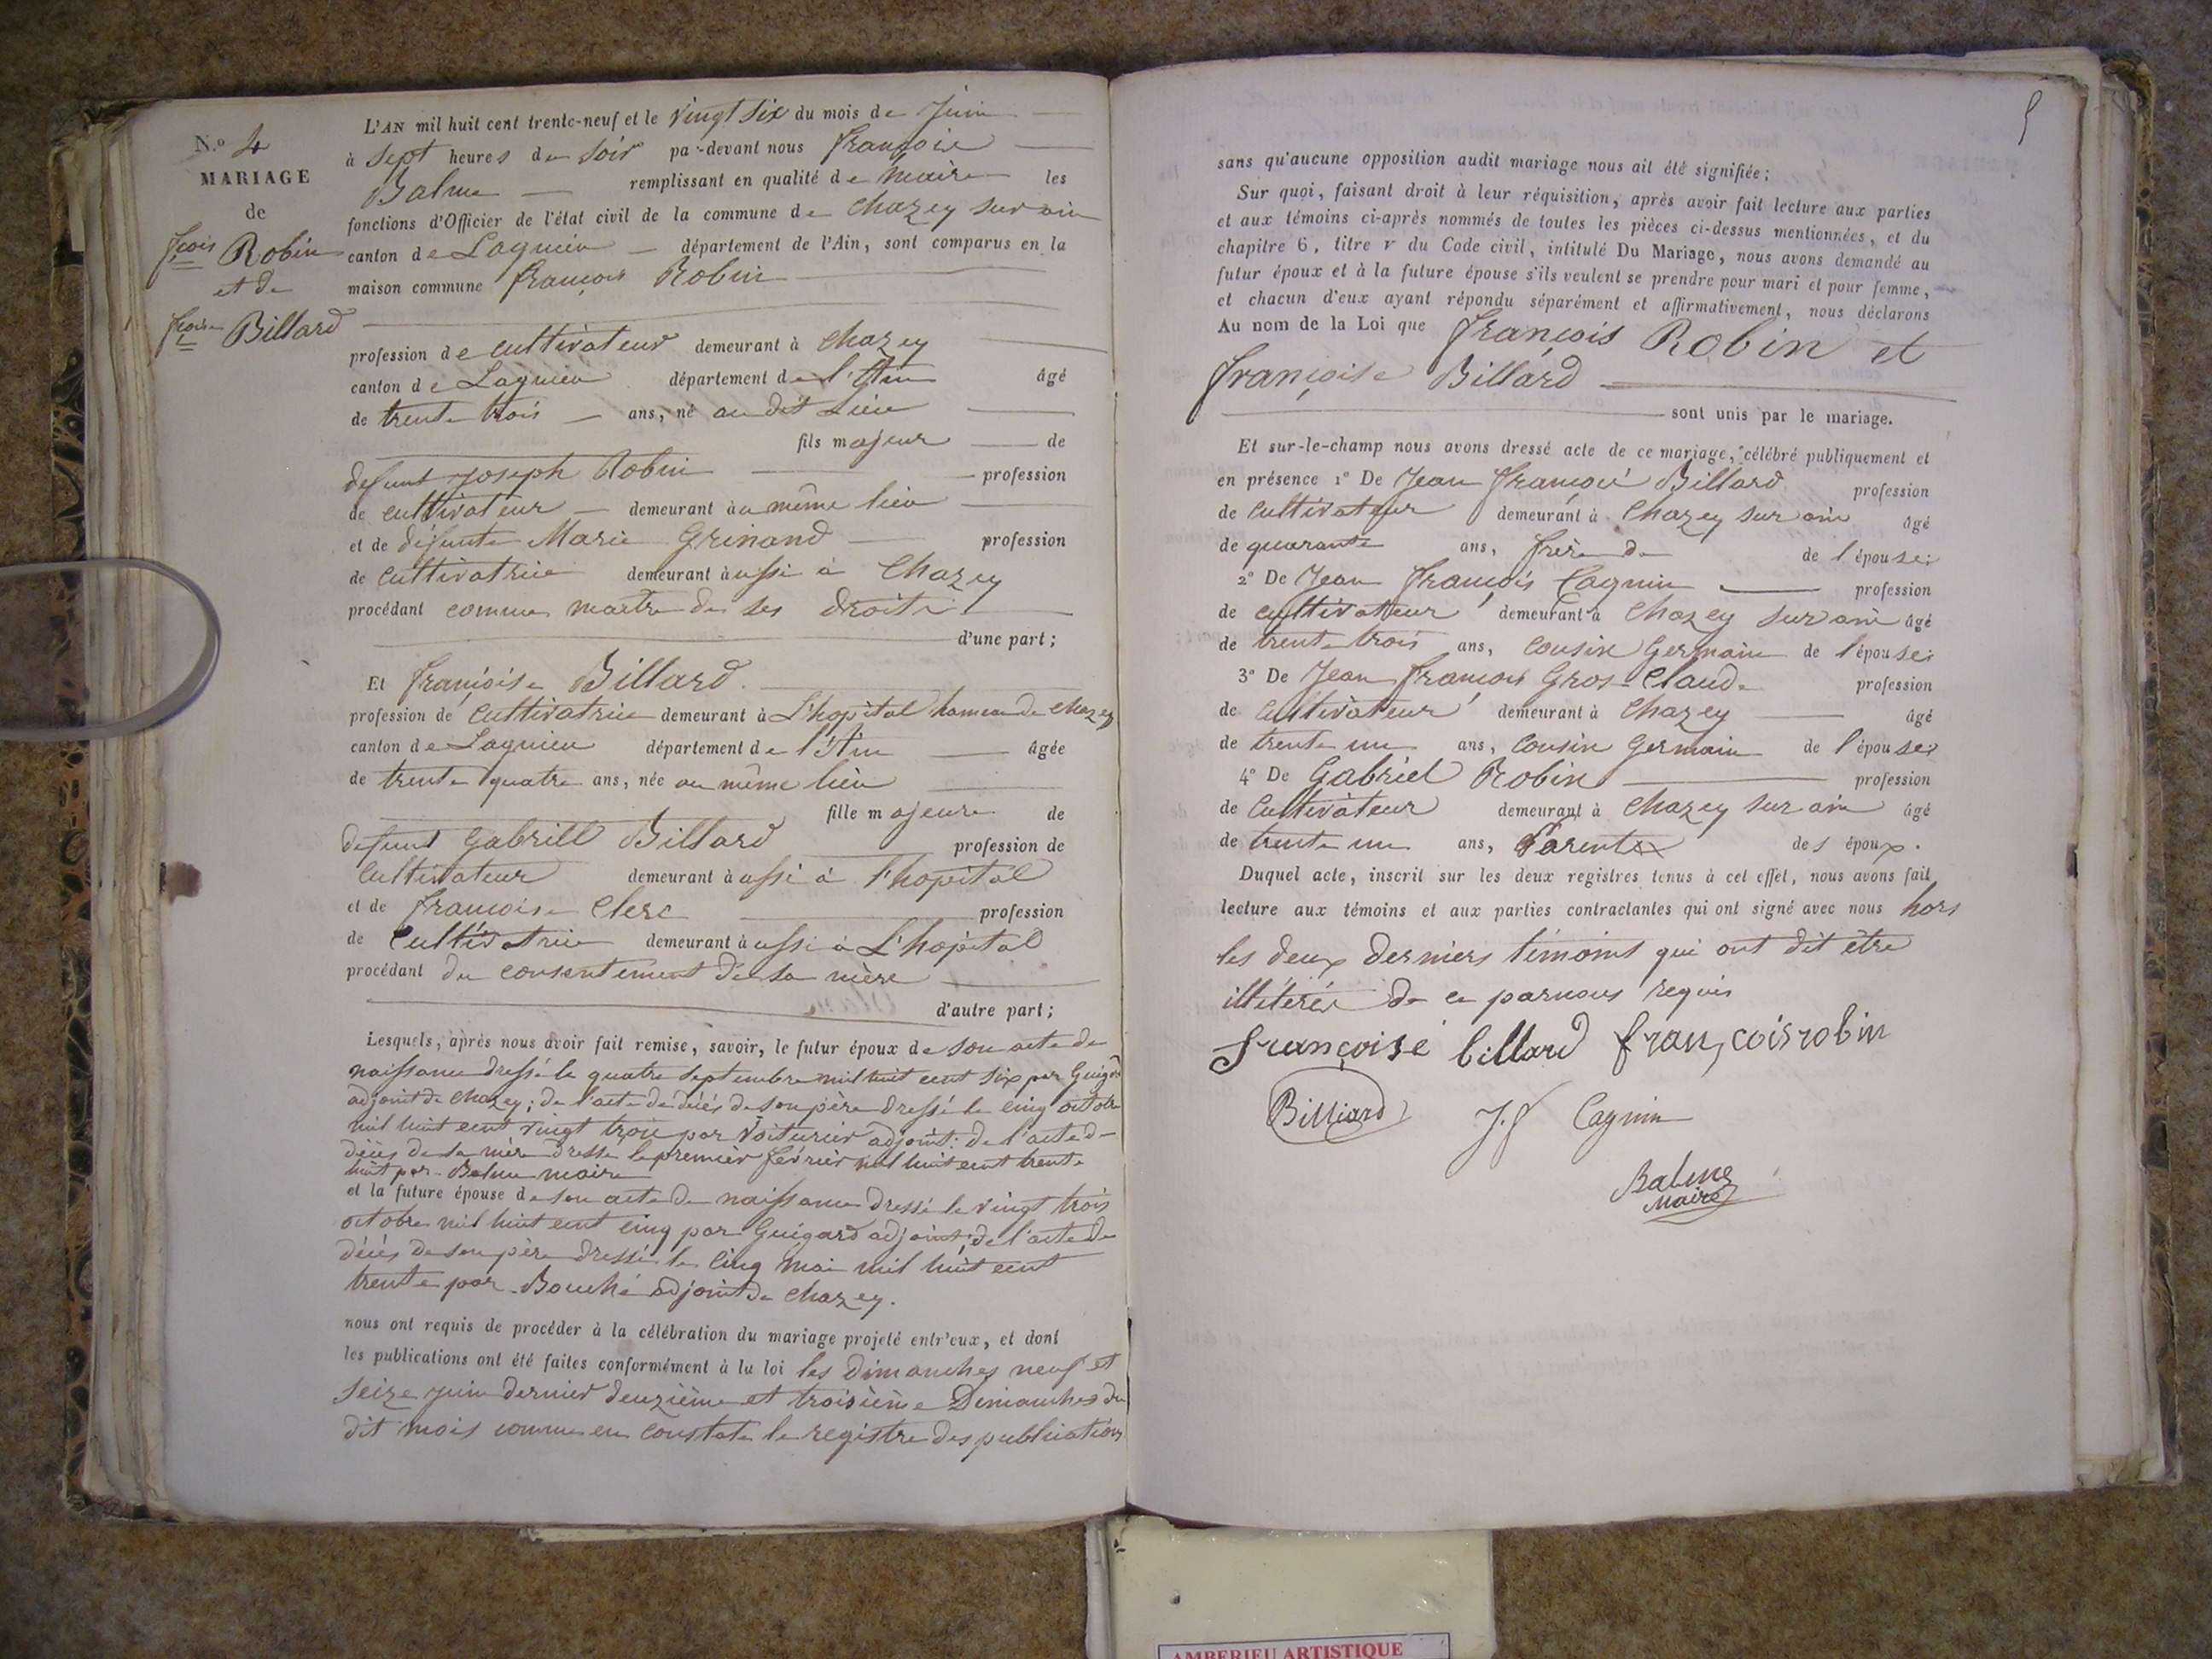 N.º 4
MARIAGE
de
fçois Robin
et de
fçoise Billard
L'AN mil huit cent trente-neuf et le vingt six du mois de Juin
à sept heures du soir par-devant nous françois
Balme remplissant en qualité de maire les
fonctions d'Officier de l'état civil de la commune de chazey sur ain
canton de Lagnieu département de l'Ain, sont comparus en la
maison commune françois Robin
profession de cultivateur demeurant à chazey
canton de Lagnieu département de l'Ain âgé
de trente trois ans, né au dit Lieu
fils majeur de
defunt joseph Robin profession
de cultivateur demeurant au même lieu
et de défunte Marie Grinand profession
de cultivatrice demeurant aussi à Chazey
procédant comme maître de ses droits
d'une part;
Et françoise Billard
profession de cultivatrice demeurant à L'hopital hameau de chazey
canton de Lagnieu département de l'Ain âgée
de trente quatre ans, née au même lieu
fille majeure de
defunt Gabriel Billard profession de
Cultivateur demeurant aussi à l'hopital
et de françoise Clerc profession
de Cultivatrice demeurant aussi à L'hopital
procédant du consentement de sa mère
d'autre part;
Lesquels, après nous avoir fait remise, savoir, le futur époux de son acte de
naissance dressé le quatre septembre mil huit cent six par Guigard
adjoint de chazey; de l'acte de décés de son père dressé le cinq octobre
mil huit cent vingt trois par Voiturier adjoint: de l'acte de
décés de sa mère dressé le premier février mil huit cent trente
huit par Balme maire
et la future épouse de son acte de naissance dressé le vingt trois
octobre mil huit cent cinq par Guigard adjoint; de l'acte de
décés de son père dressé le cinq mai mil huit cent
trente par Bouché adjoint de chazey.
nous ont requis de procéder à la célébration du mariage projeté entr'eux, et dont
les publications ont été faites conformément à la loi les Dimanches neuf et
seize juin dernier deuxième et troisième Dimanches du
dit mois comme en constate le registre des publications
5
sans qu'aucune opposition audit mariage nous ait été signifiée;
Sur quoi, faisant droit à leur réquisition, après avoir fait lecture aux parties
et aux témoins ci-après nommés de toutes les pièces ci-dessus mentionnées, et du
chapitre 6, titre v du Code civil, intitulé Du Mariage, nous avons demandé au
futur époux et à la future épouse s'ils veulent se prendre pour mari et pour femme,
et chacun d'eux ayant répondu séparément et affirmativement, nous déclarons
Au nom de la Loi que françois Robin et
françoise Billard
sont unis par le mariage.
Et sur-le-champ nous avons dressé acte de ce mariage, célébré publiquement et
en présence 1º De Jean françois Billard profession
de cultivateur demeurant à Chazey sur ain âgé
de quarante ans, frère de de l'épouse;
2º De Jean françois Cagnin profession
de cultivateur demeurant à Chazey sur ain âgé
de trente trois ans, cousin Germain de l'épouse;
3º De Jean françois Gros-Claude profession
de Cultivateur demeurant à Chazey âgé
de trente un ans, cousin Germain de l'épouse;
4º De Gabriel Robin profession
de Cultivateur demeurant à Chazey sur ain âgé
de trente un ans, Parent des époux.
Duquel acte, inscrit sur les deux registres tenus à cet effet, nous avons fait
lecture aux témoins et aux parties contractantes qui ont signé avec nous hors
les deux derniers témoins qui ont dit être
illitérés de ce par nous requis
françoise billard françois robin
Billiard J.f Cagnin
Balme
maire
AMBERIEU ARTISTIQUE